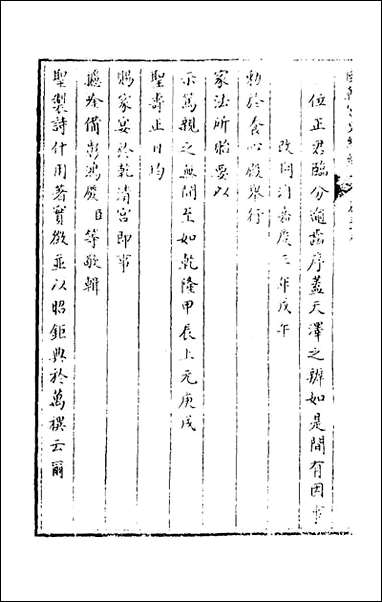 位正君臨分適當序蓋天澤之辨如是間有因事
改期淌嘉慶三年戊午
勅於養心殿舉行
家法所貽要以
示篤親之無間至如乾隆甲辰上元庚戌
聖壽正日均
賜家宴於乾清宮即事
臚吟備彰鴻慶臣等敬輯
聖製詩什用著實徵並以昭鉅典於萬禩云爾